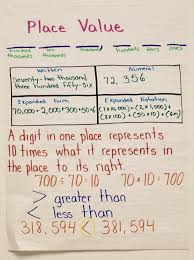 Place Value
hundred thousands ten thousands thousands hundreds tens ones
Written
Seventy-two thousand
three hundred fifty-six
Numeral
72,356
Expanded form
70,000+2,000+300+50+6
Expanded Notation
(7x10,000)+(2x1,000)+
(3x100)+(5x10)+(6x1)
A digit in one place represents
10 times what it represents in
the place to its right.
700=70÷10 70x10=700
> greater than
< less than
318,594 < 381,594